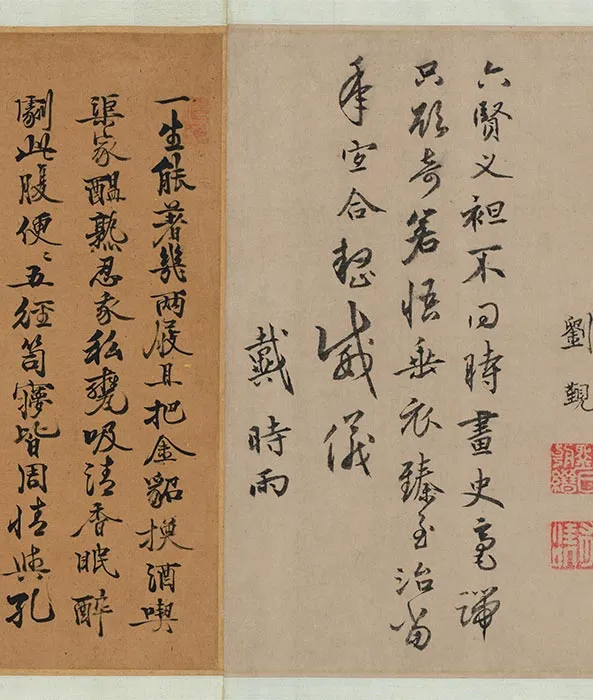 劉覲
六賢义袒不同時畫史毫端
只取奇若悟垂衣臻至治當
年宜合整威儀
戴時雨
一生能著幾兩屐且把金貂換酒喫
渠家醖熟忍家私甕吸清香眠醉
劇此腹便〻五經笥皆周情與孔